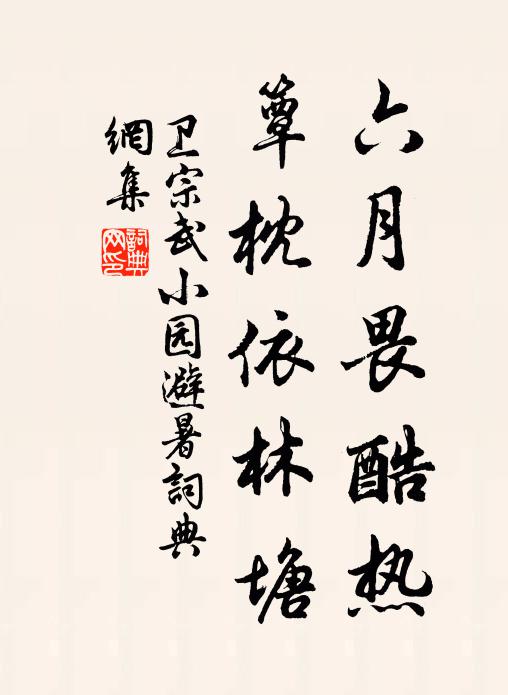 六月畏酷热
簟枕依林塘
卫宗武小园避暑词典
網集
詞典
网印